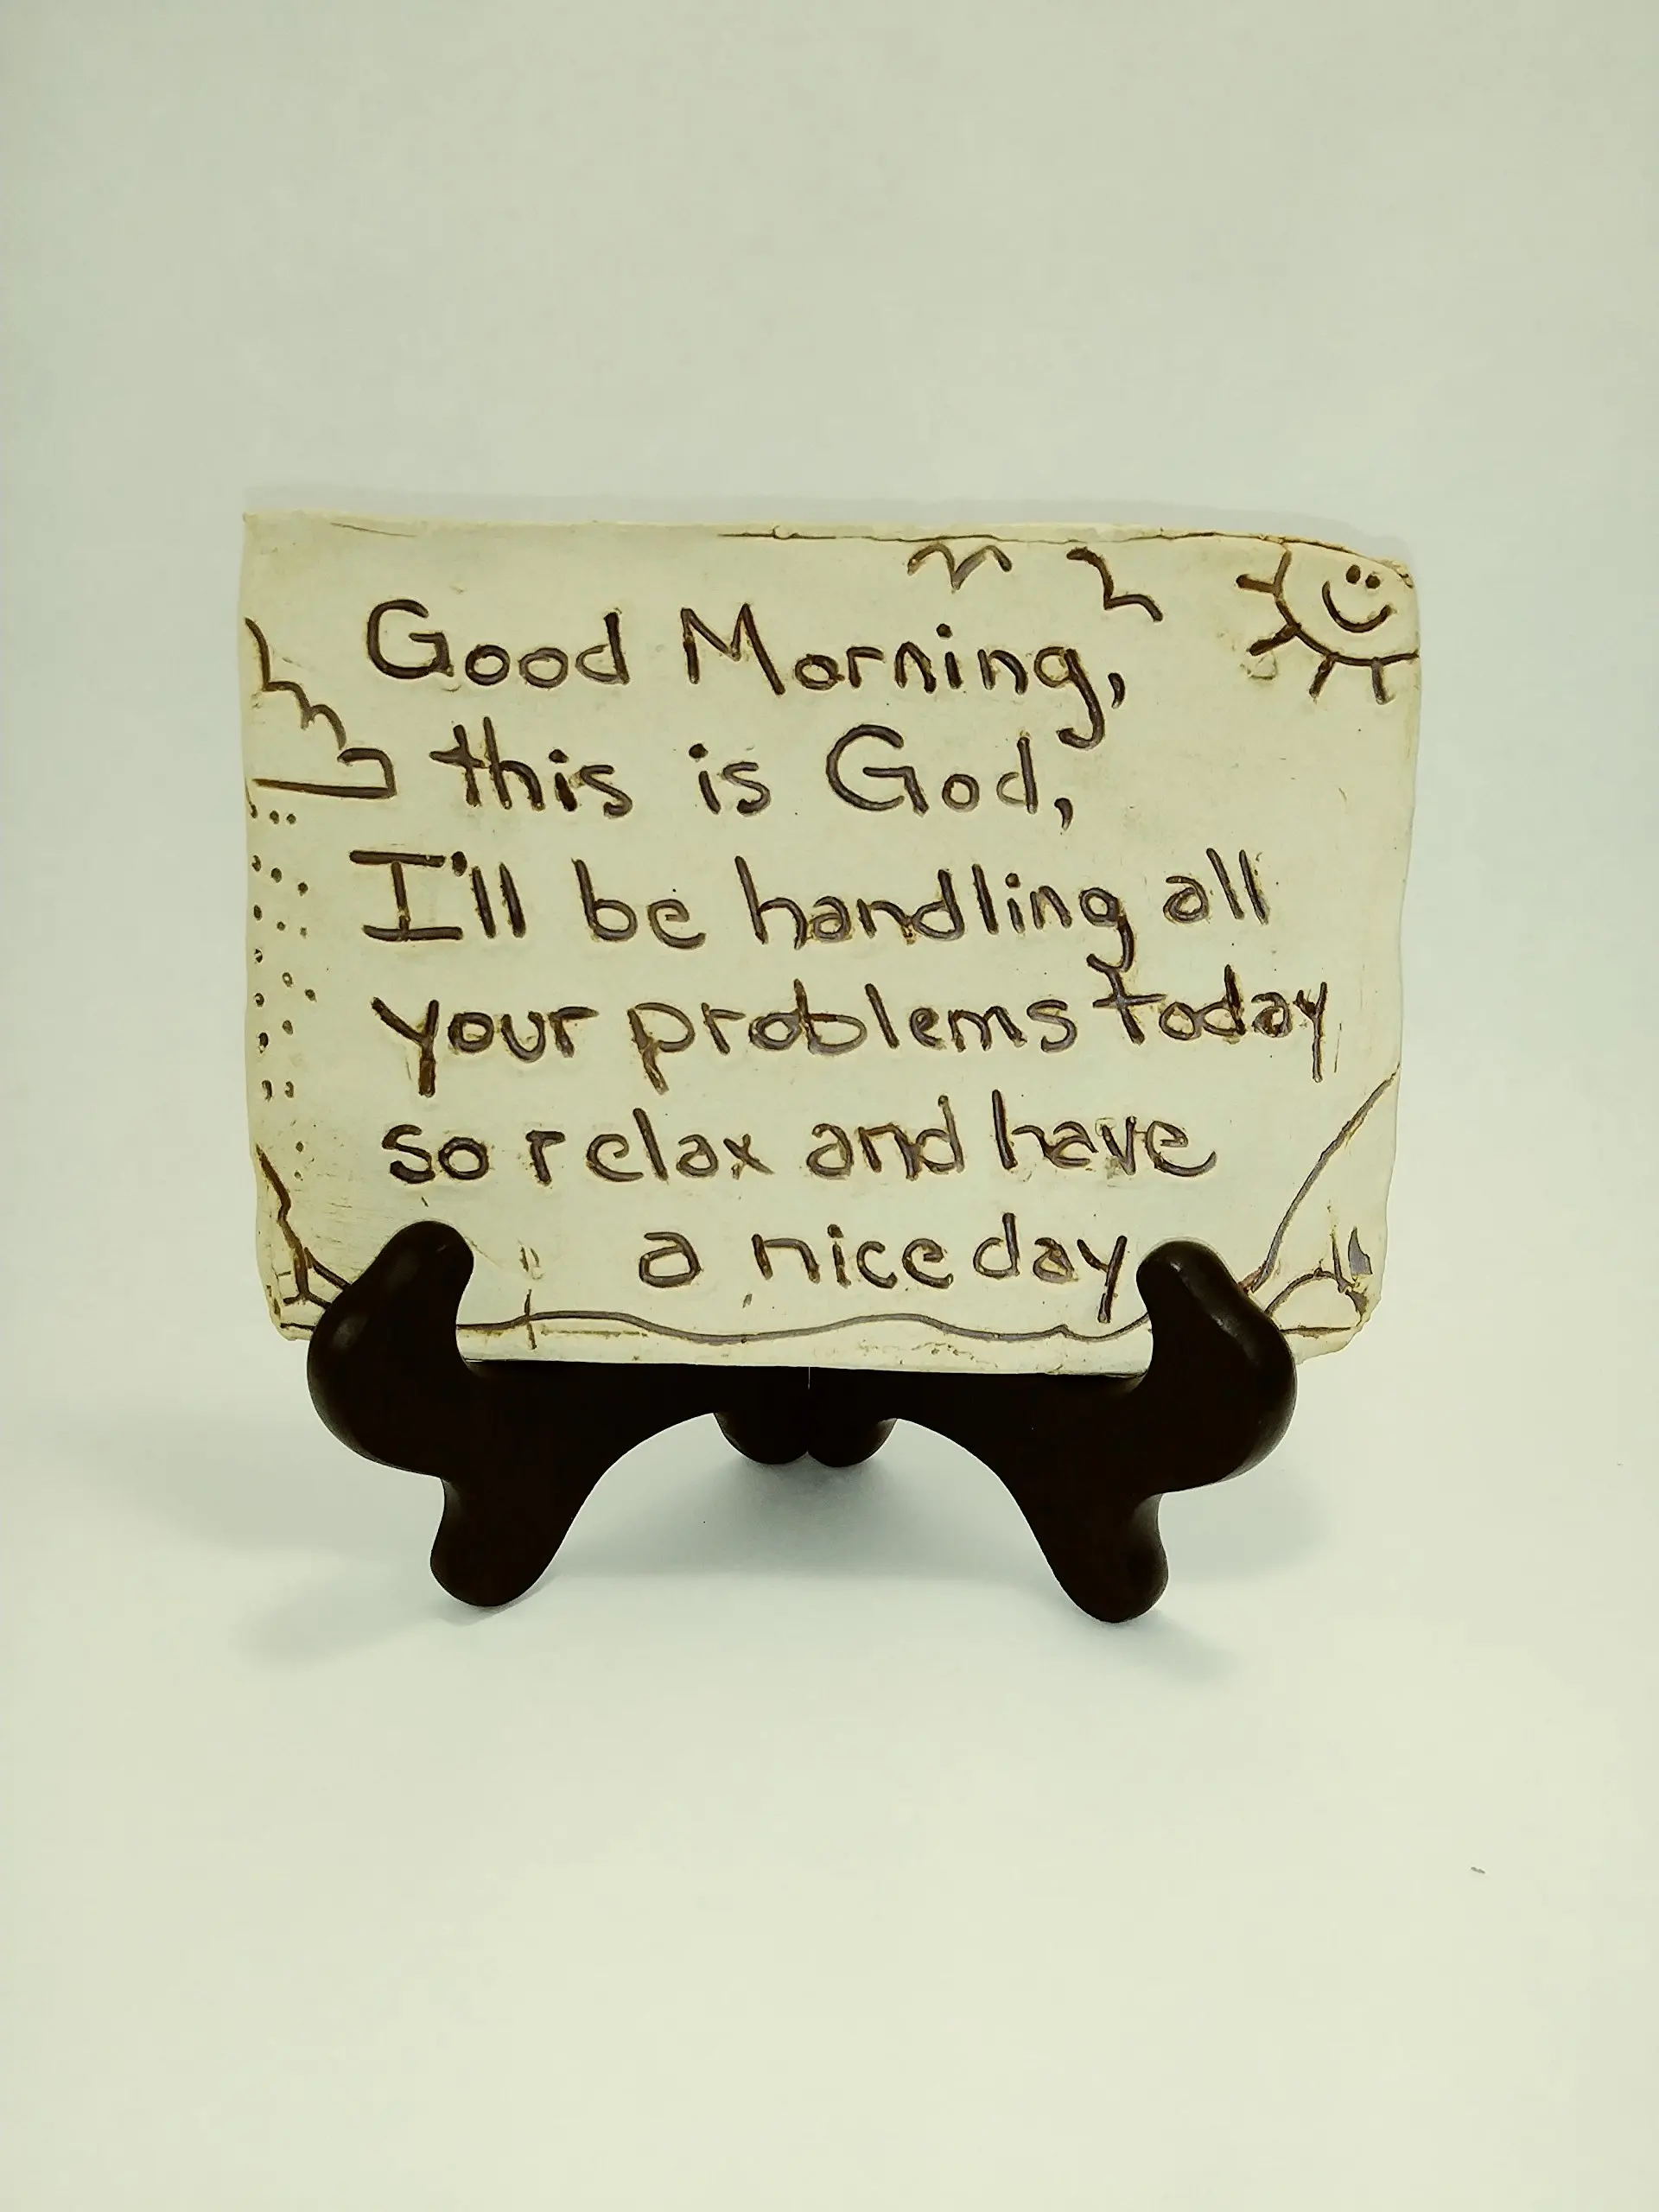 Good Morning,
this is God,
I'll be handling all
your problems today
so relax and have
a nice day